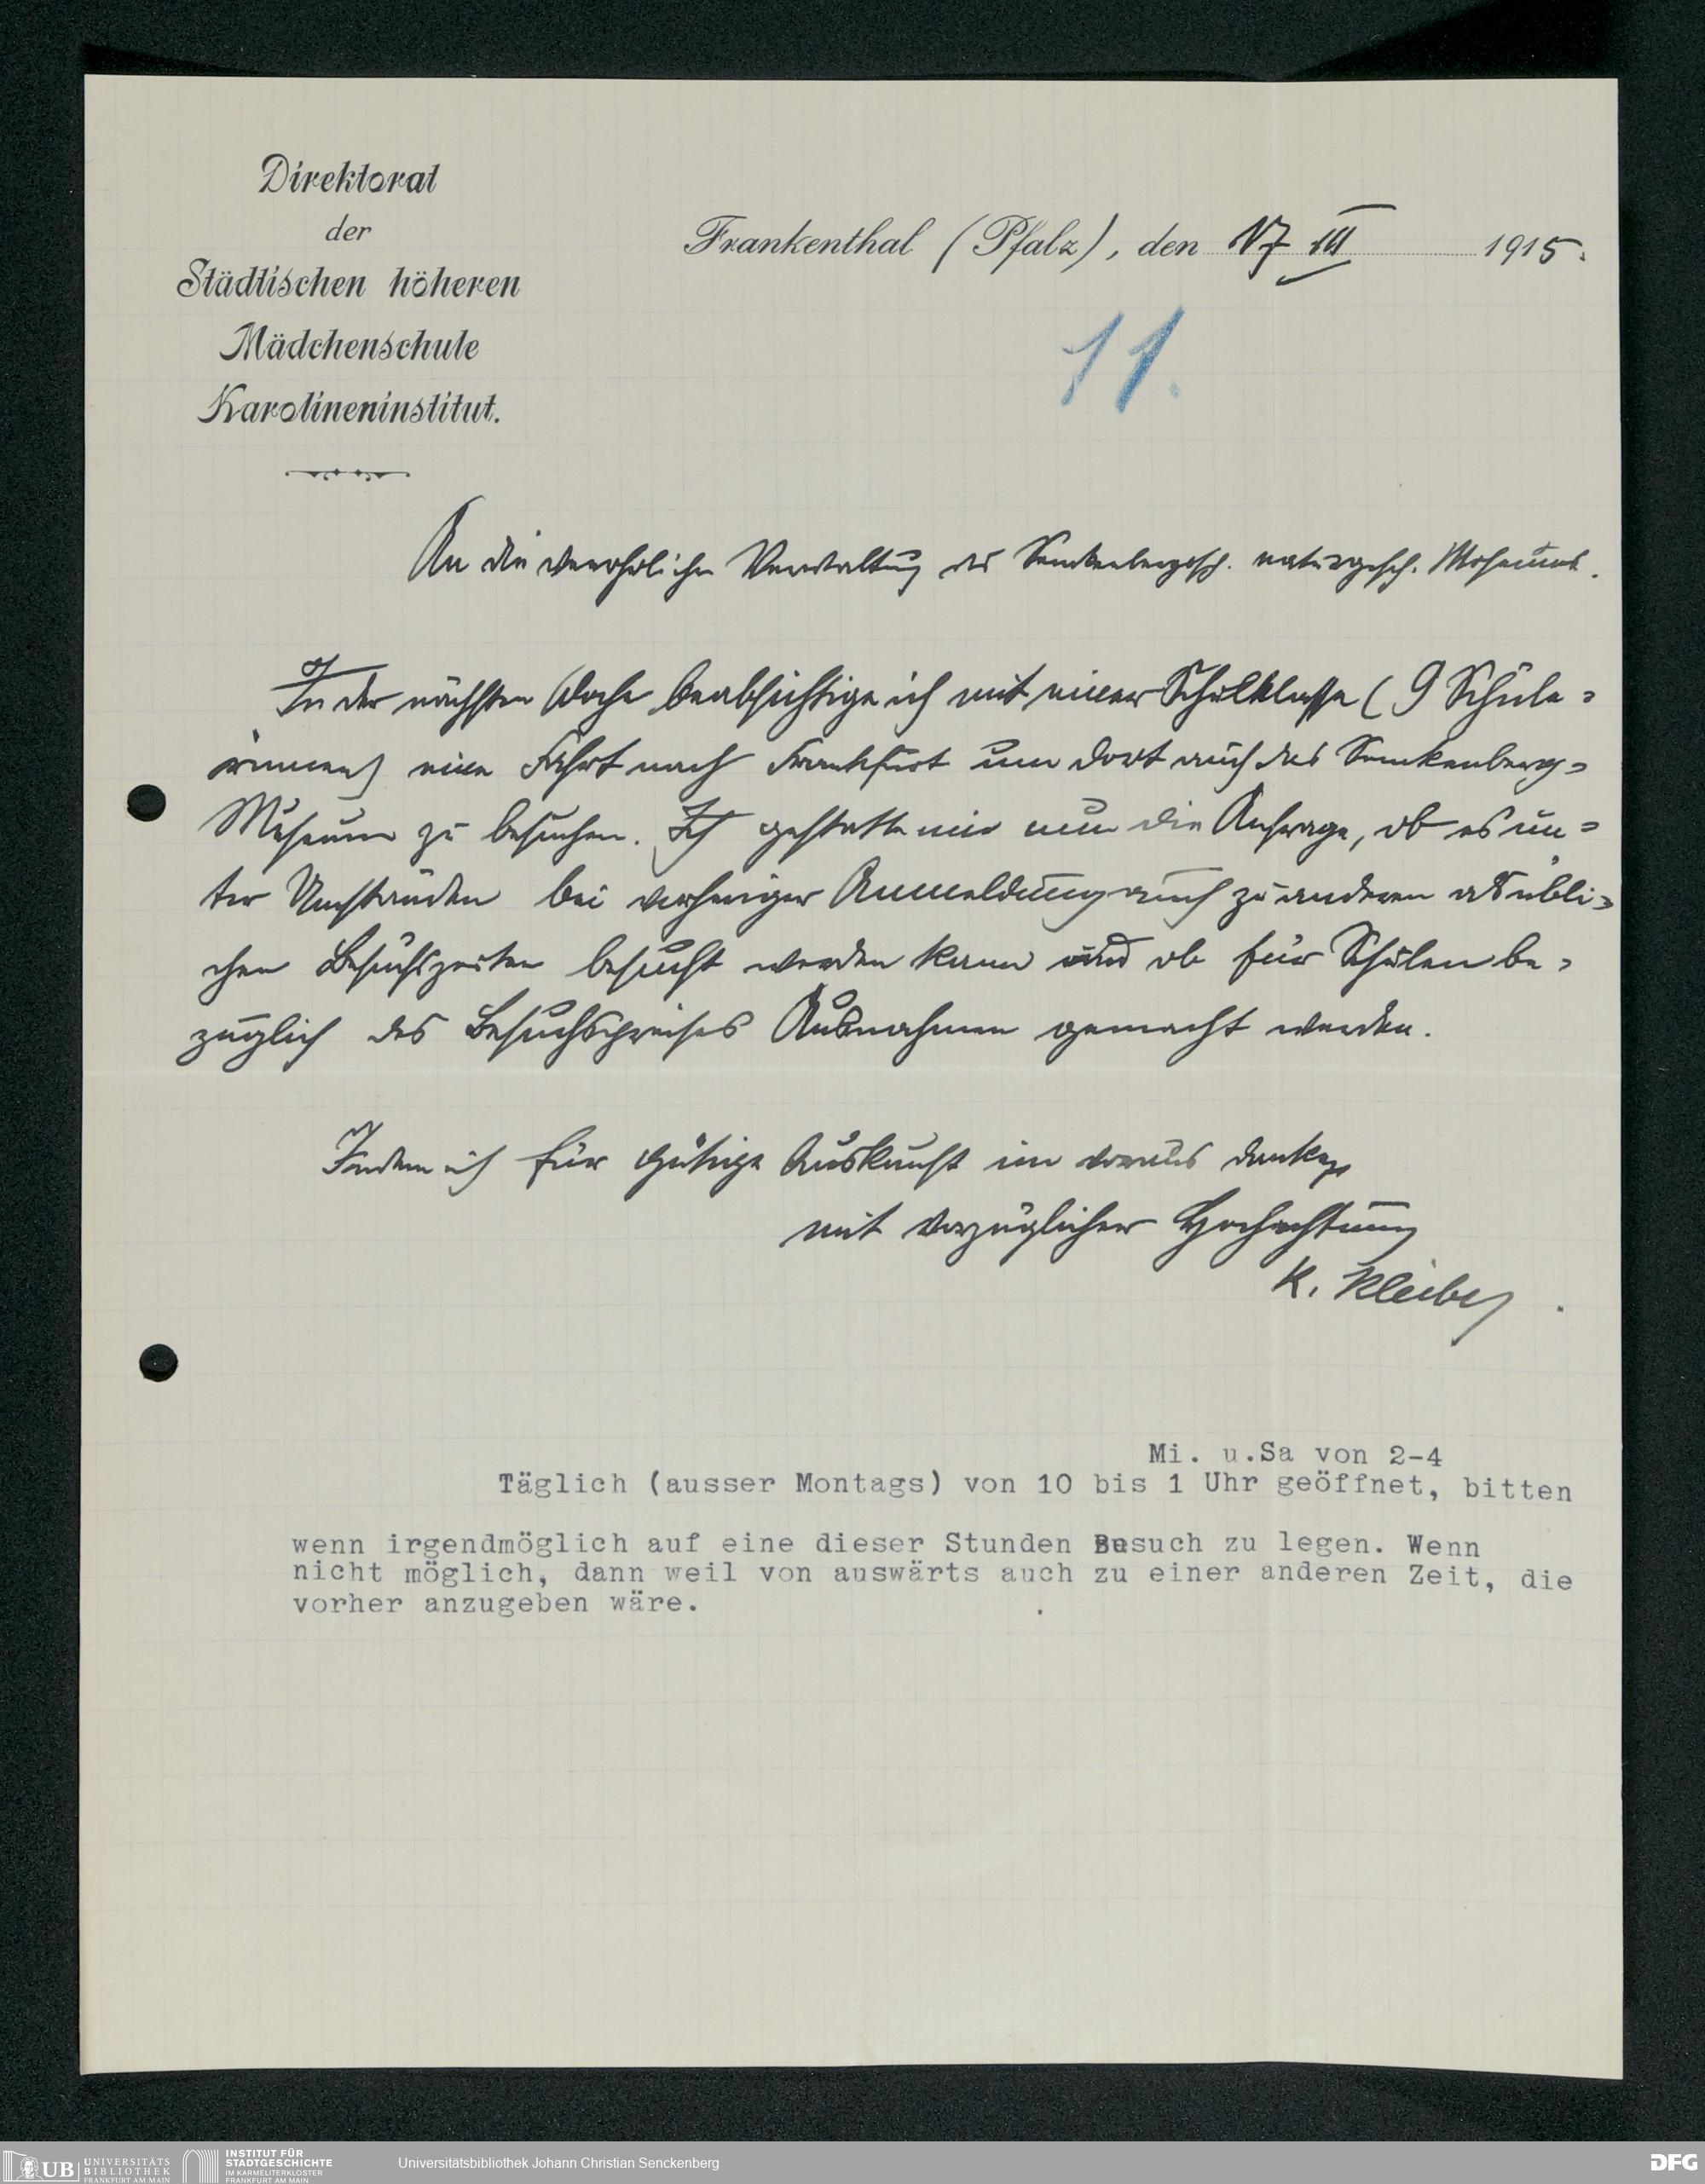 Direktorat
der
Städtischen höheren
Mädchenschule
Karolineninstitut.
Frankenthal (Pfalz), den 17 III 1915.
11.
An die verehrliche Verwaltung des Senckenbergisch. naturgesch. Museums.
In der nächsten Woche beabsichtige ich mit einer Schulklasse (9 Schüle-
rinnen) eine Fahrt nach Frankfurt um dort auch das Senkenberg-
Museum zu besuchen. Ich gestatte mir nun die Anfrage, ob es un-
ter Umständen bei vorheriger Anmeldung auch zu anderen als übli-
chen Besuchszeiten besucht werden kann und ob für Schulen be-
züglich des Besuchspreises Ausnahmen gemacht werden.
Indem ich für gütige Auskunft im voraus danke,
mit vorzüglicher Hochachtung
K. Kleiber
Mi. u.Sa von 2-4
Täglich (ausser Montags) von 10 bis 1 Uhr geöffnet, bitten
wenn irgendmöglich auf eine dieser Stunden Besuch zu legen. Wenn
nicht möglich, dann weil von auswärts auch zu einer anderen Zeit, die
vorher anzugeben wäre.
UB UNIVERSITÄTS
BIBLIOTHEK
FRANKFURT AM MAIN
INSTITUT FÜR
STADTGESCHICHTE
IM KARMELITERKLOSTER
FRANKFURT AM MAIN
Universitätsbibliothek Johann Christian Senckenberg
DFG